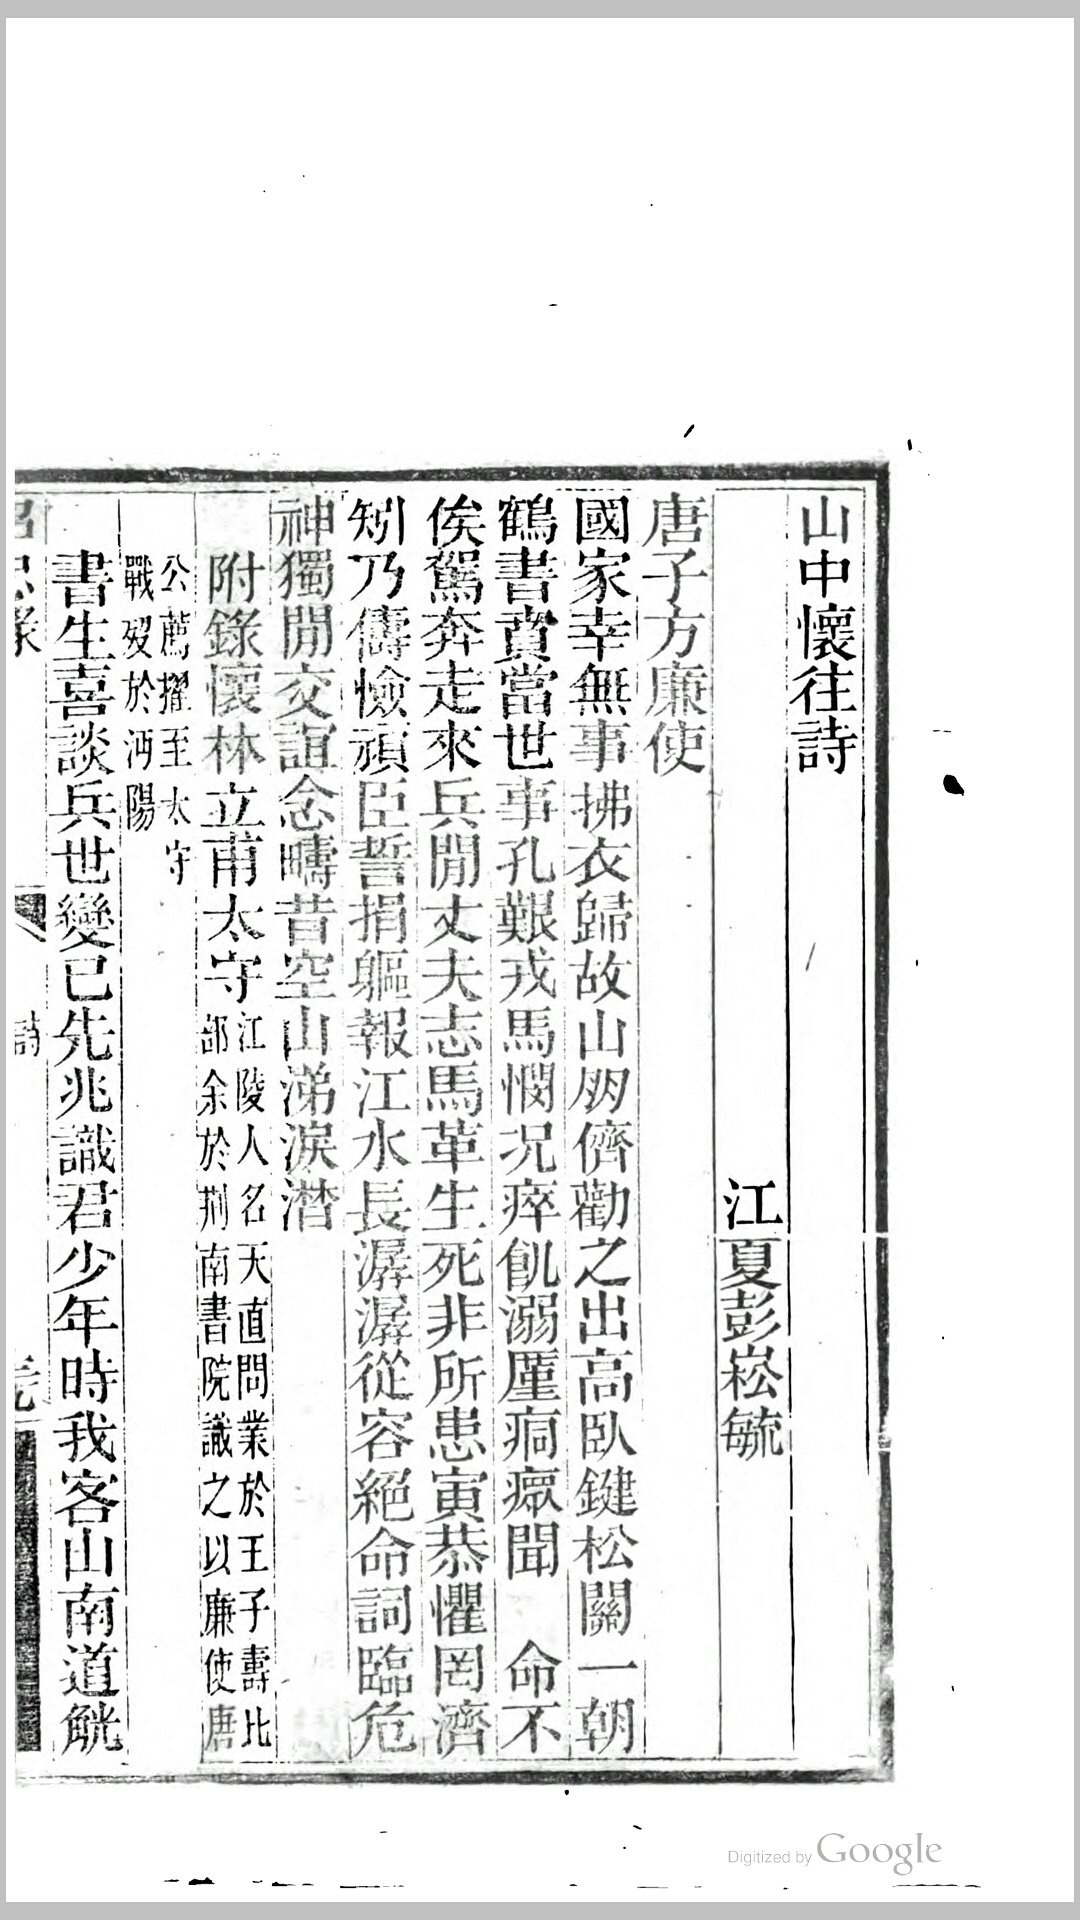 山中懷往詩
江夏彭崧毓
唐子方廉使
國家幸無事拂衣歸故山朋儕勸之出高臥鍵松關一朝
鶴書賁當世事孔艱戎馬憫况瘁飢溺厪痌瘝聞　命不
俟駕奔走來兵閒丈夫志馬革生死非所患寅恭懼罔濟
矧乃儔憸頑臣誓捐軀報江水長潺潺從容絕命詞臨危
神獨閒交誼念疇昔空山涕淚潸
附錄懷林立甫太守
江陵人名天直問業於王子壽比
部余於荆南書院識之以廉使唐
公薦擢至太守
戰歿於沔陽
書生喜談兵世變已先兆識君少年時我客山南道觥
詩
Digitized by Google